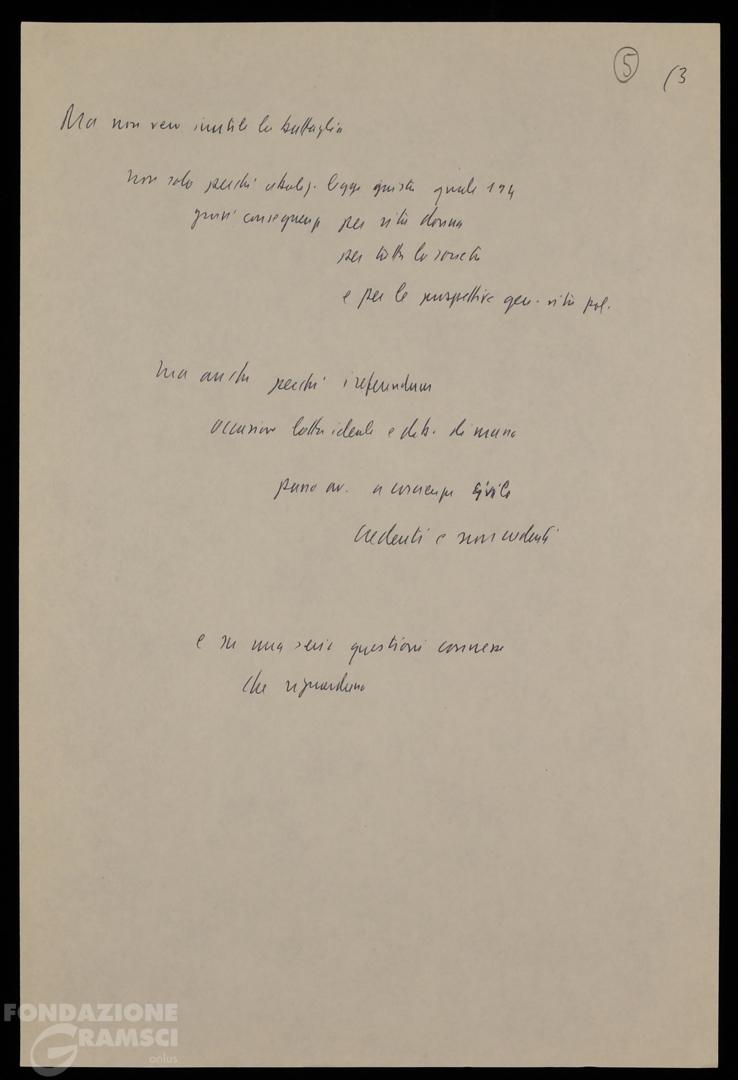 5 (3
Ma non vera inutile la battaglia
non solo perché abolaz. legge giusta quale 194
gravi conseguenze per vita donna
per tutta la società
e per le prospettive gen. vita pol.
ma anche perché i referendum
occasione lotta ideale e dib. di massa
passo av. a coscienza civile
credenti e non credenti
e su una serie questioni connesse
che riguardano
FONDAZIONE
GRAMSCI
onlus